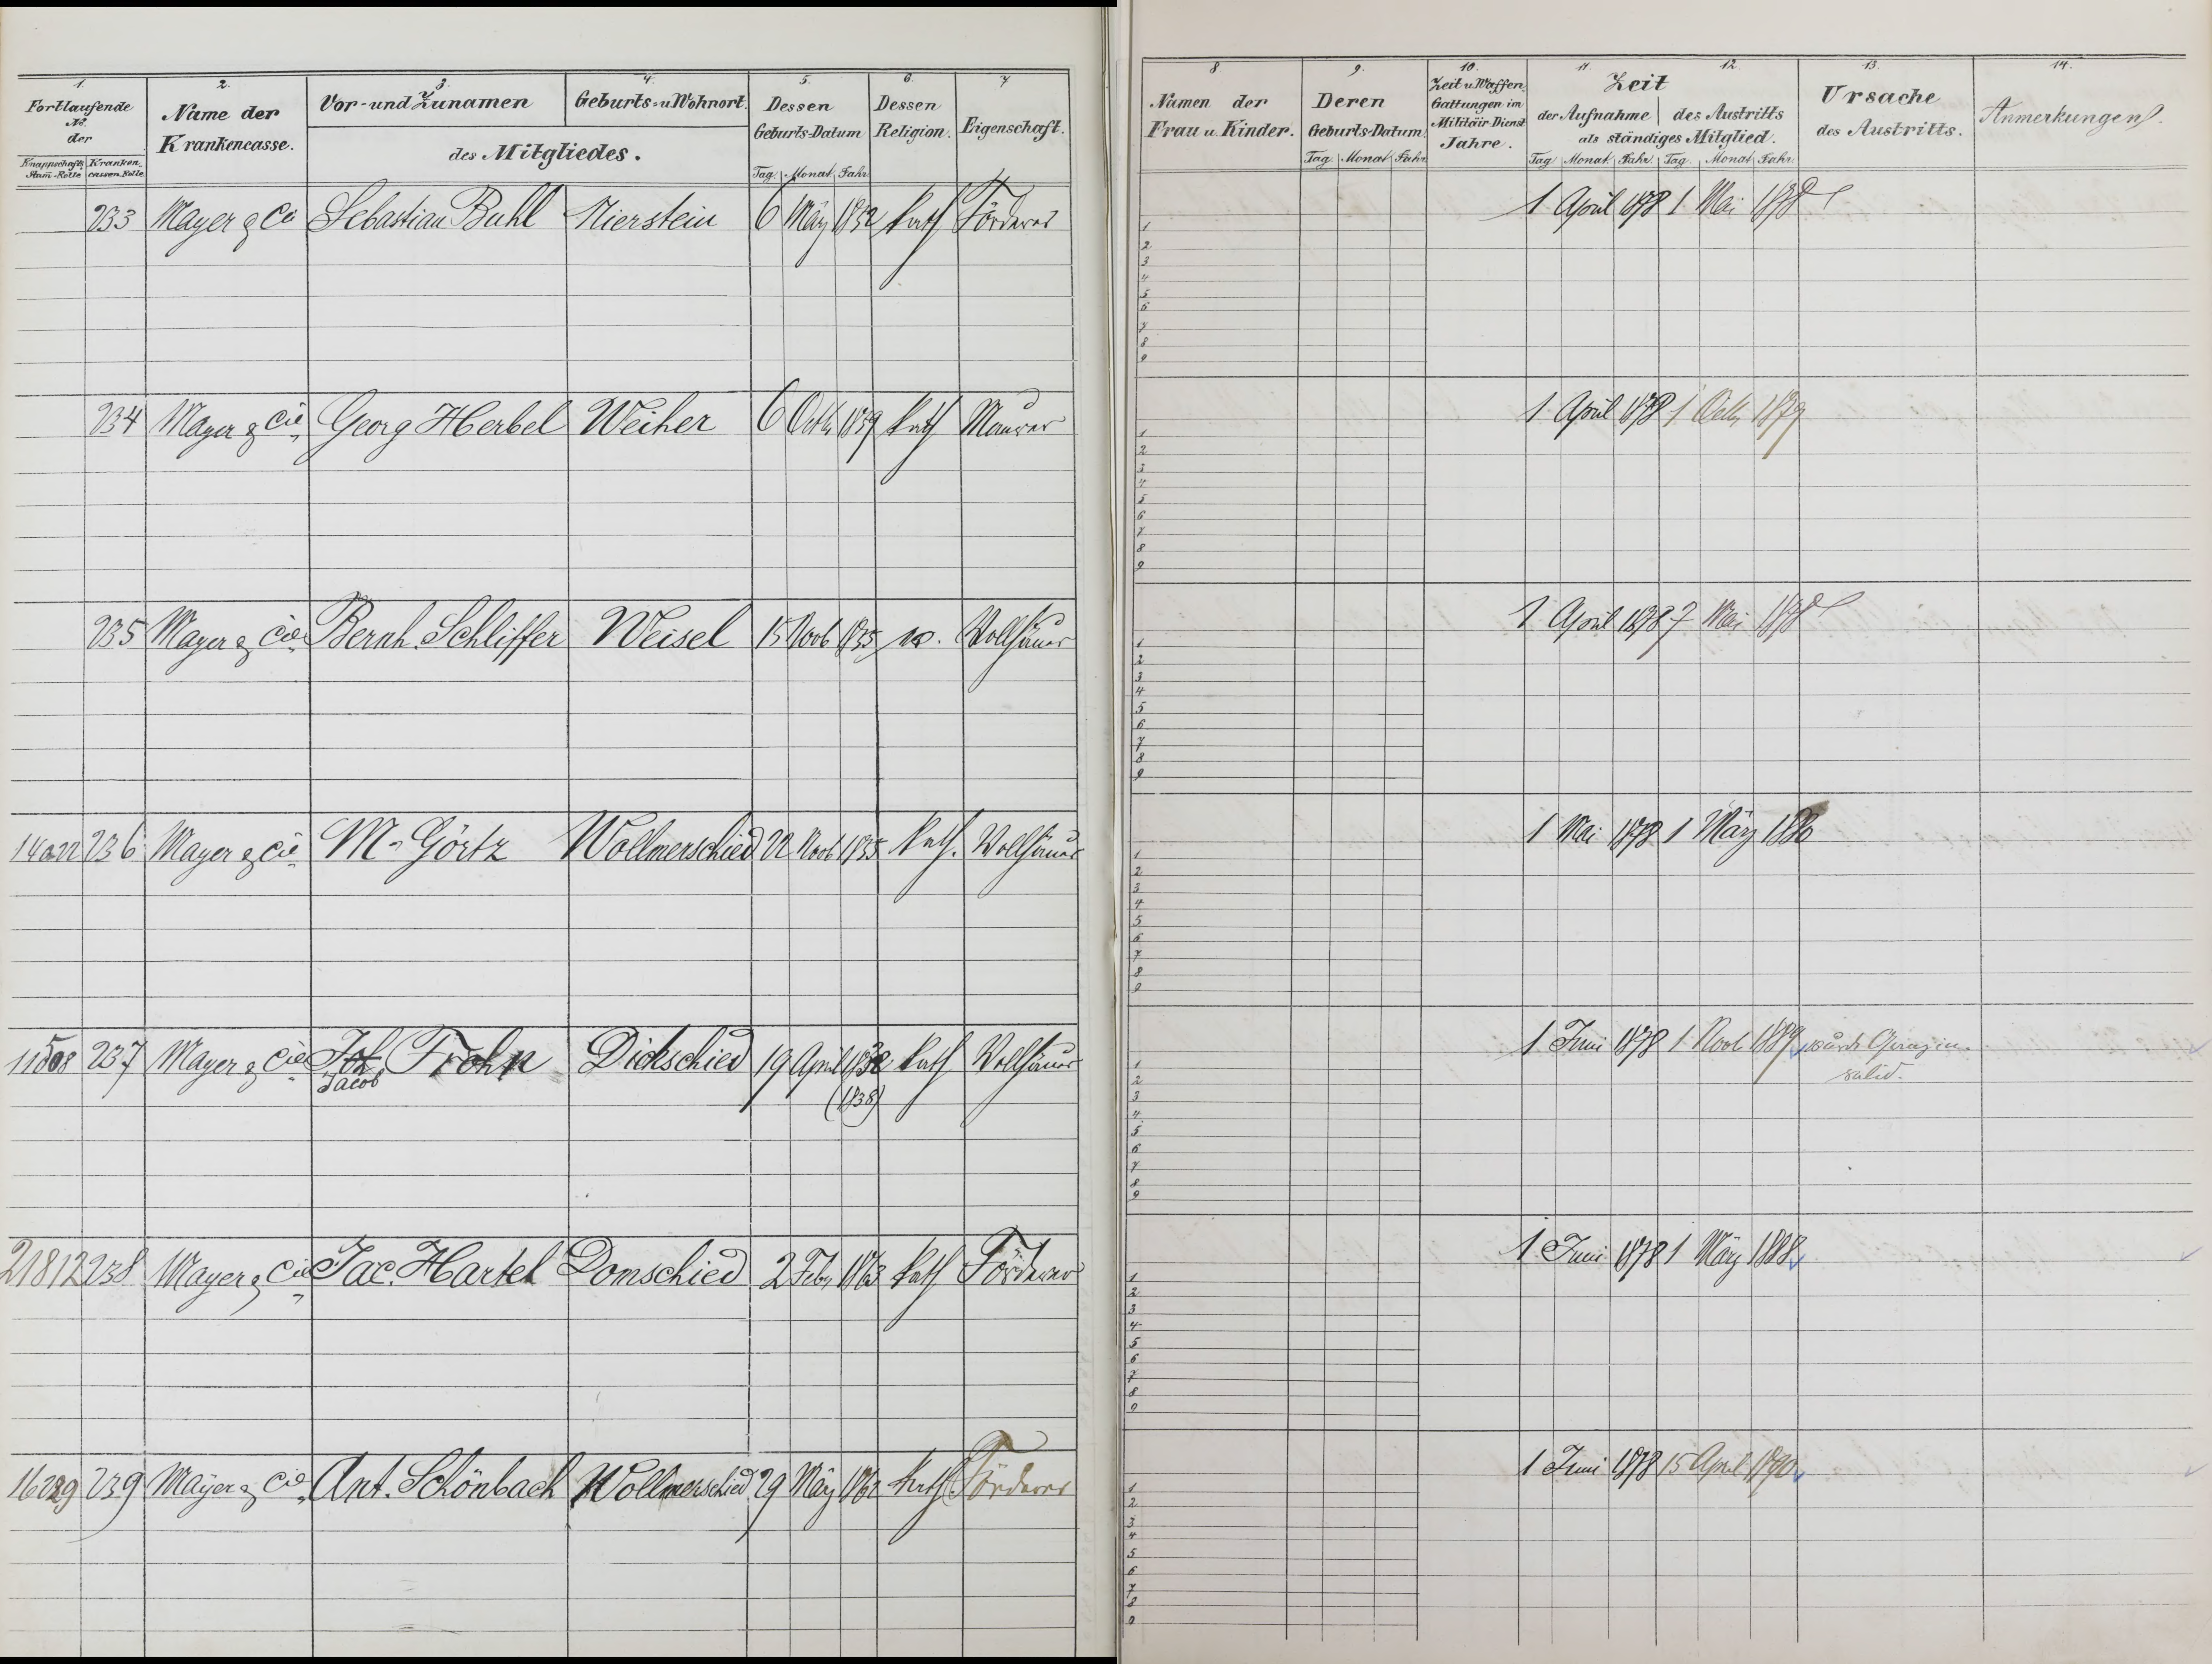 1. 2. 3. 4. 5. 6. 7
Fortlaufende No. der
Knappschafts Stam-Rolle Kranken cassen-Rolle
Name der Krankencasse.
Vor- und Zunamen Geburts- u Wohnort.
des Mitgliedes.
Dessen Geburts-Datum
Tag Monat Jahr
Dessen Religion.
Eigenschaft.
233 Mayer & Cie Sebastian Buhl Nierstein 6 März 1832 kath Förderer
234 Mayer & Cie Georg Herbel Weiher 6 Octb 1839 kath Maurer
235 Mayer & Cie Bernh. Schliffer Weisel 15 Novb 1835 Vollhäuer
236 Mayer & Cie M. Görtz Wollmerschied 22 Novb 1835 kath. Vollhäuer
237 Mayer & Cie Joh Frohn Dickschied 19 April kath Vollhäuer
Jacob (1838)
21812 238 Mayer & Cie Jac. Hartel Domschied 2 Feb 1863 kath Förderer
239 Mayer & Cie Ant. Schönbach Wollmerschied 29 März 1862 kath Förderer
8 9. 10. 11. 12. 13. 14.
Namen der Frau u. Kinder.
Deren Geburts-Datum
Tag Monat Jahr
Zeit u Waffen Gattungen im Militär-Dienst Jahre.
Zeit
der Aufnahme des Austritts
als ständiges Mitglied.
Tag Monat Jahr Tag Monat Jahr
Ursache des Austritts.
Anmerkungen.
1 April 1878 1 Mai 1878
1
2
3
4
5
6
7
8
9
1 April 1878 1 Octb 1879
1
2
3
4
5
6
7
8
9
1 April 1878 7 Mai 1878
1
2
3
4
5
6
7
8
9
1 Mai 1878 1 März 1880
1
2
3
4
5
6
7
8
9
1 Juni 1878 1 Novb 1889
1
2
3
4
5
6
7
8
9
1 Juni 1878 1 März 1888
1
2
3
4
5
6
7
8
9
1 Juni 1878 15 April 1890
1
2
3
4
5
6
7
8
9